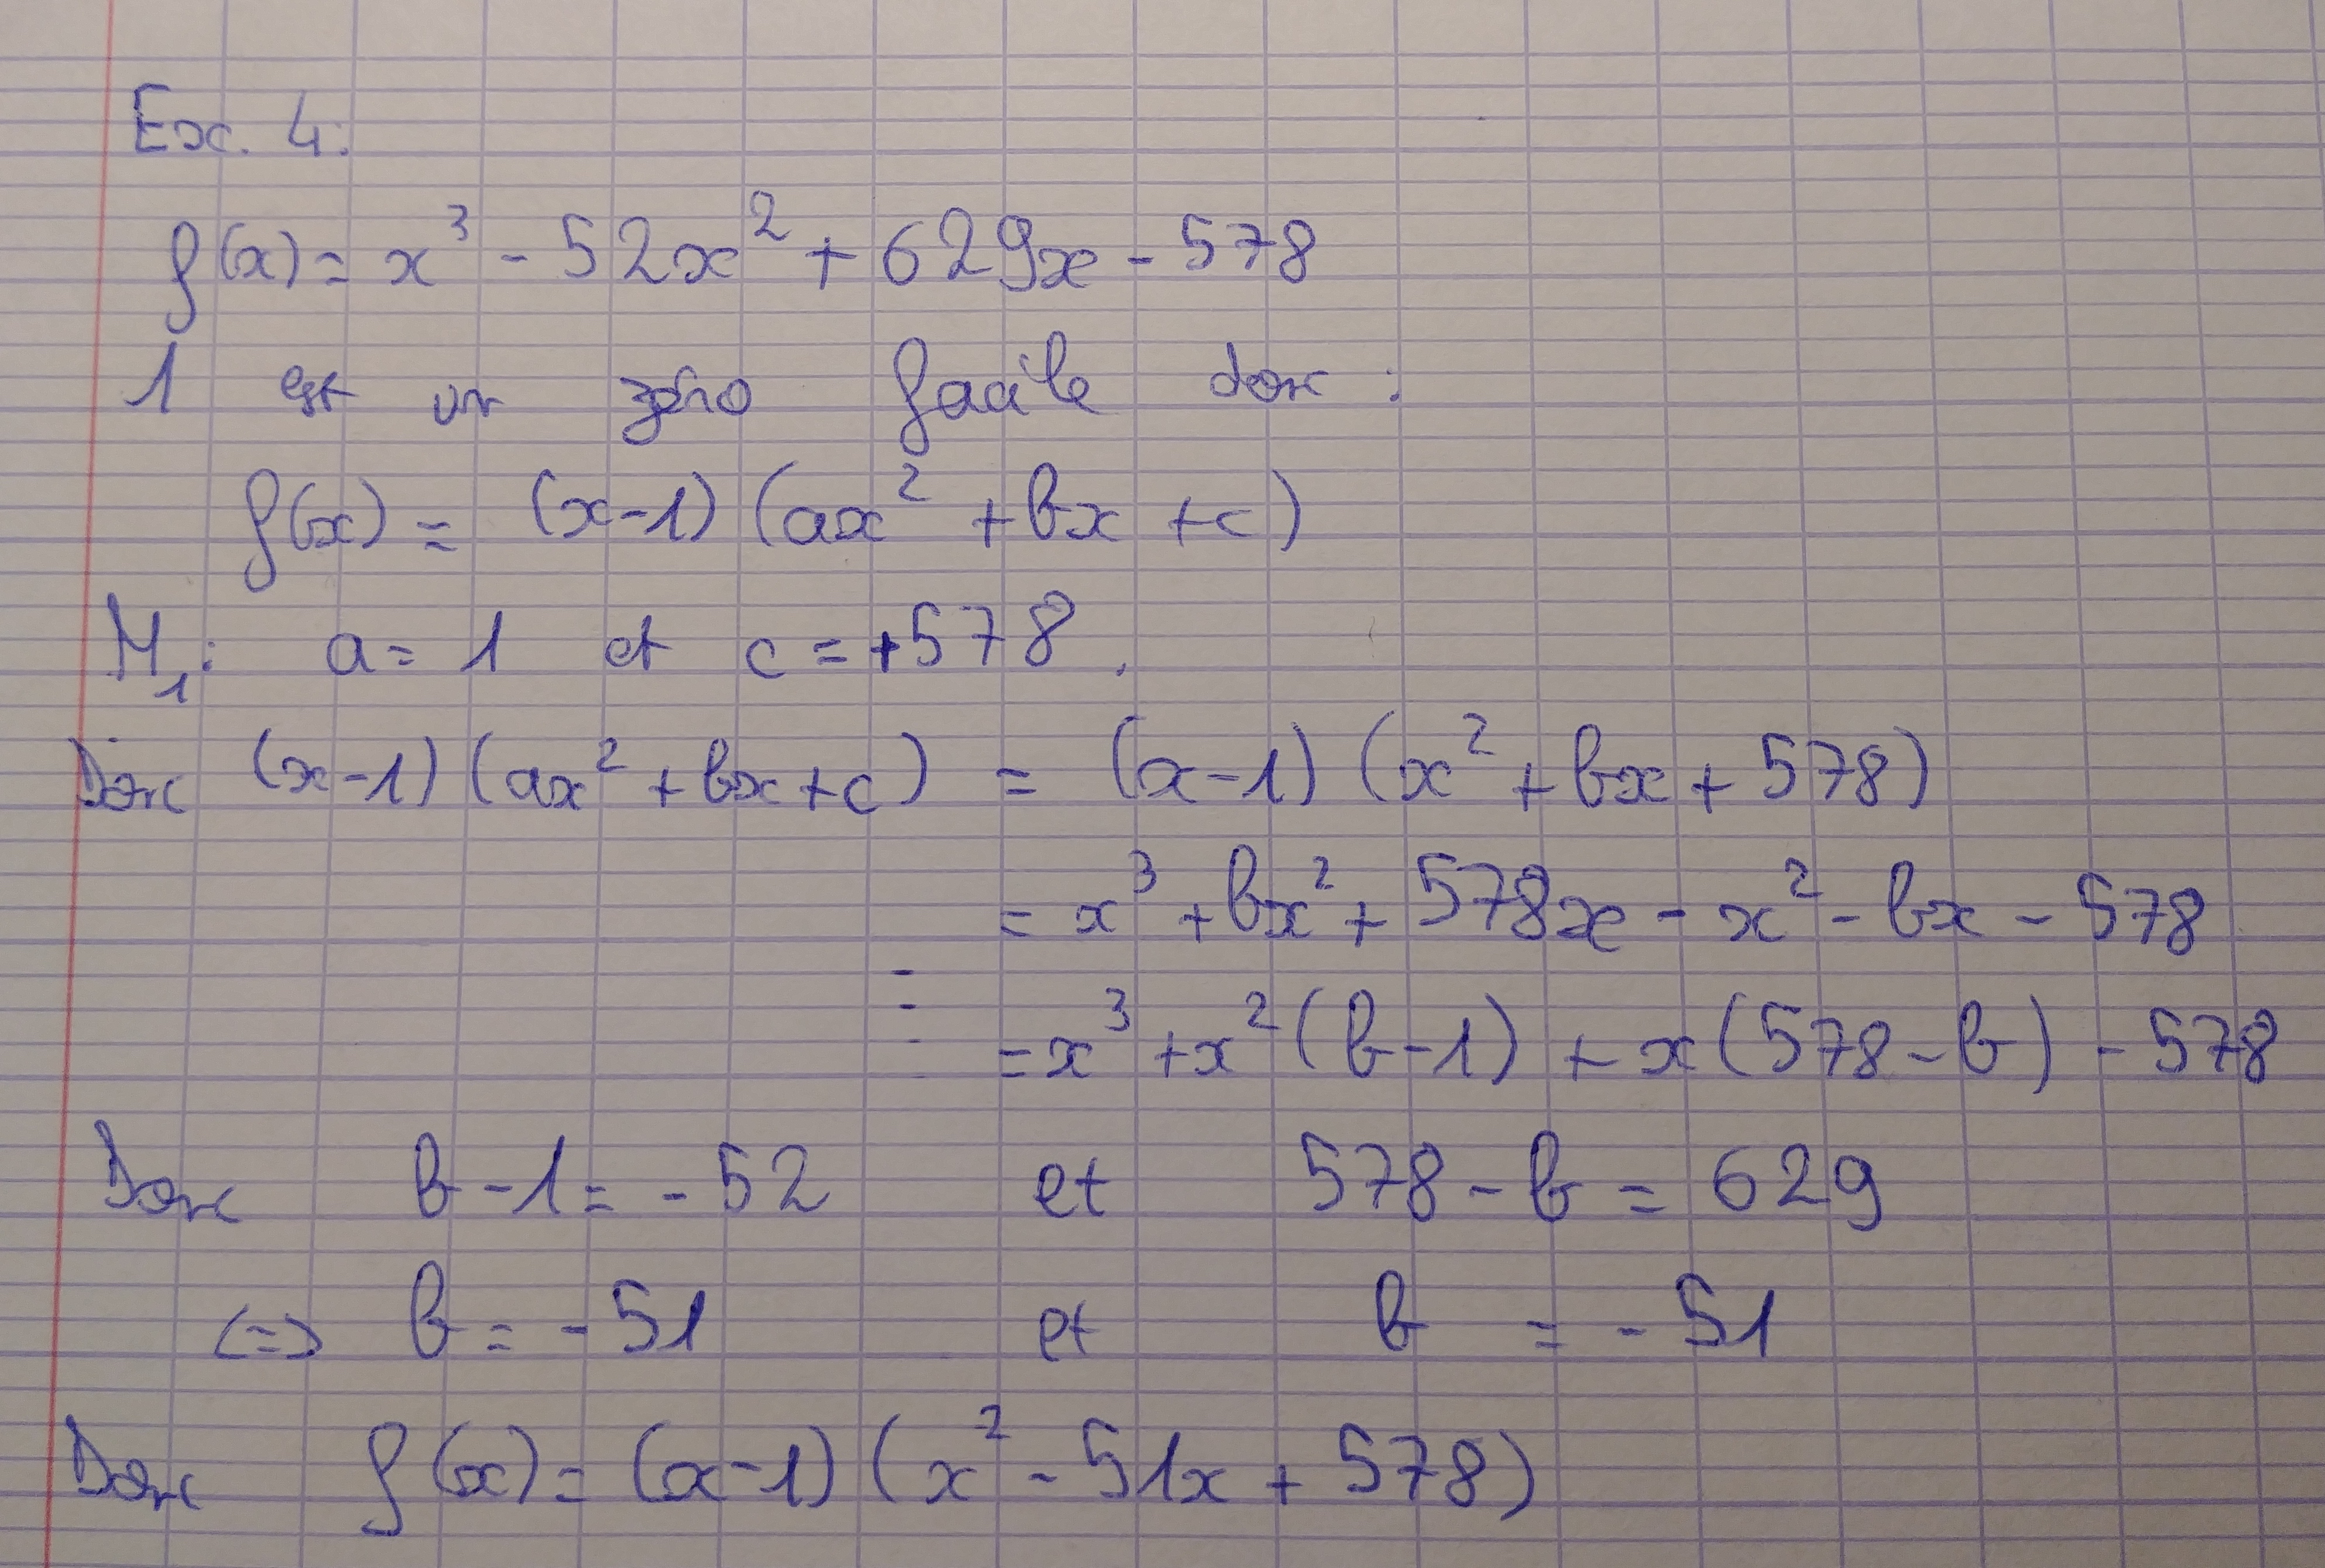 Ex. 4:
f(x) = x³ - 52x² + 629x - 578
1 est un zéro facile donc :
f(x) = (x-1) (ax² + bx + c)
M₁: a = 1 et c = +578.
Donc (x-1) (ax² + bx + c) = (x-1) (x² + bx + 578)
= x³ + bx² + 578x - x² - bx - 578
= x³ + x² (b-1) + x (578 - b) - 578
Donc b - 1 = - 52 et 578 - b = 629
<=> b = - 51 et b = - 51
Donc f(x) = (x-1) (x² - 51x + 578)